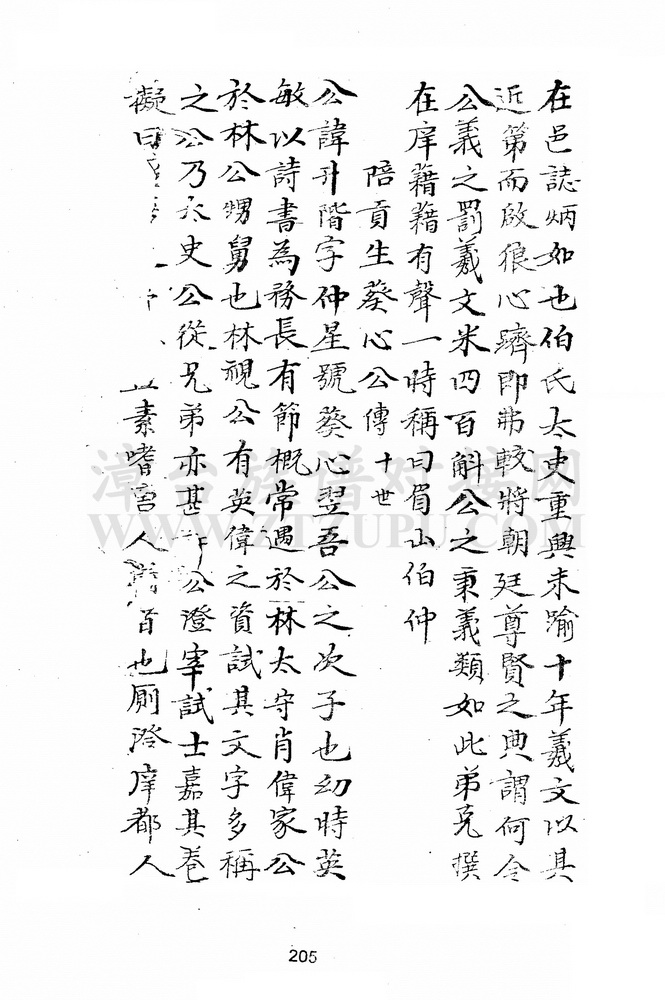 在邑誌炳如也伯氏太史重興未踰十年羲文以其
近第而啟狼心躋即弗較將朝廷尊賢之典謂何令
公義之罰羲文米四百斛公之秉義類如此弟克撰
在庠藉藉有聲一時稱曰眉山伯仲
陪貢生葵心公傳 十世
公諱升階字仲星號葵心翌吾公之次子也幼時英
敏以詩書為務長有節概常遇於林太守肖偉家公
於林公甥舅也林視公有英偉之資試其文字多稱
之公乃太史公從兄弟亦甚公澄宰試士嘉其卷
擬曰素嗜啻人首也厠澄庠都人
漳台族谱对接网
WWW.ZTZUPU.COM
205